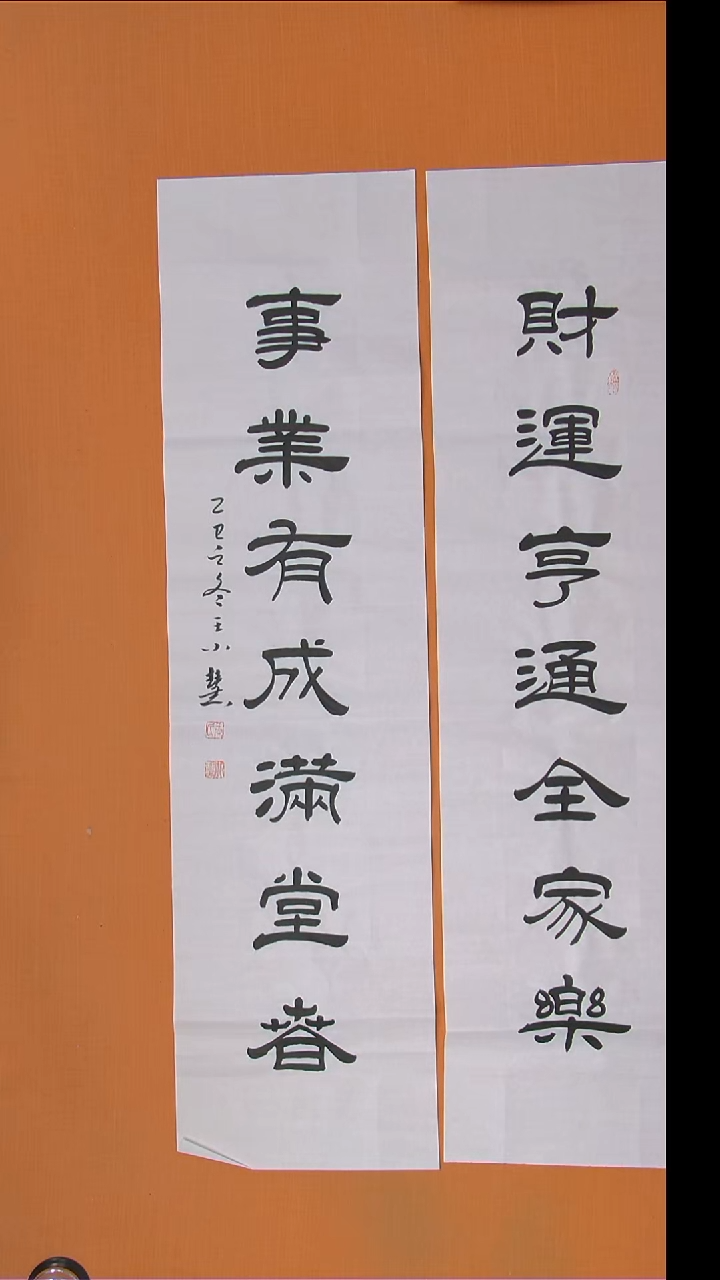 財運亨通全家樂
事業有成滿堂春
乙丑之冬王小慧